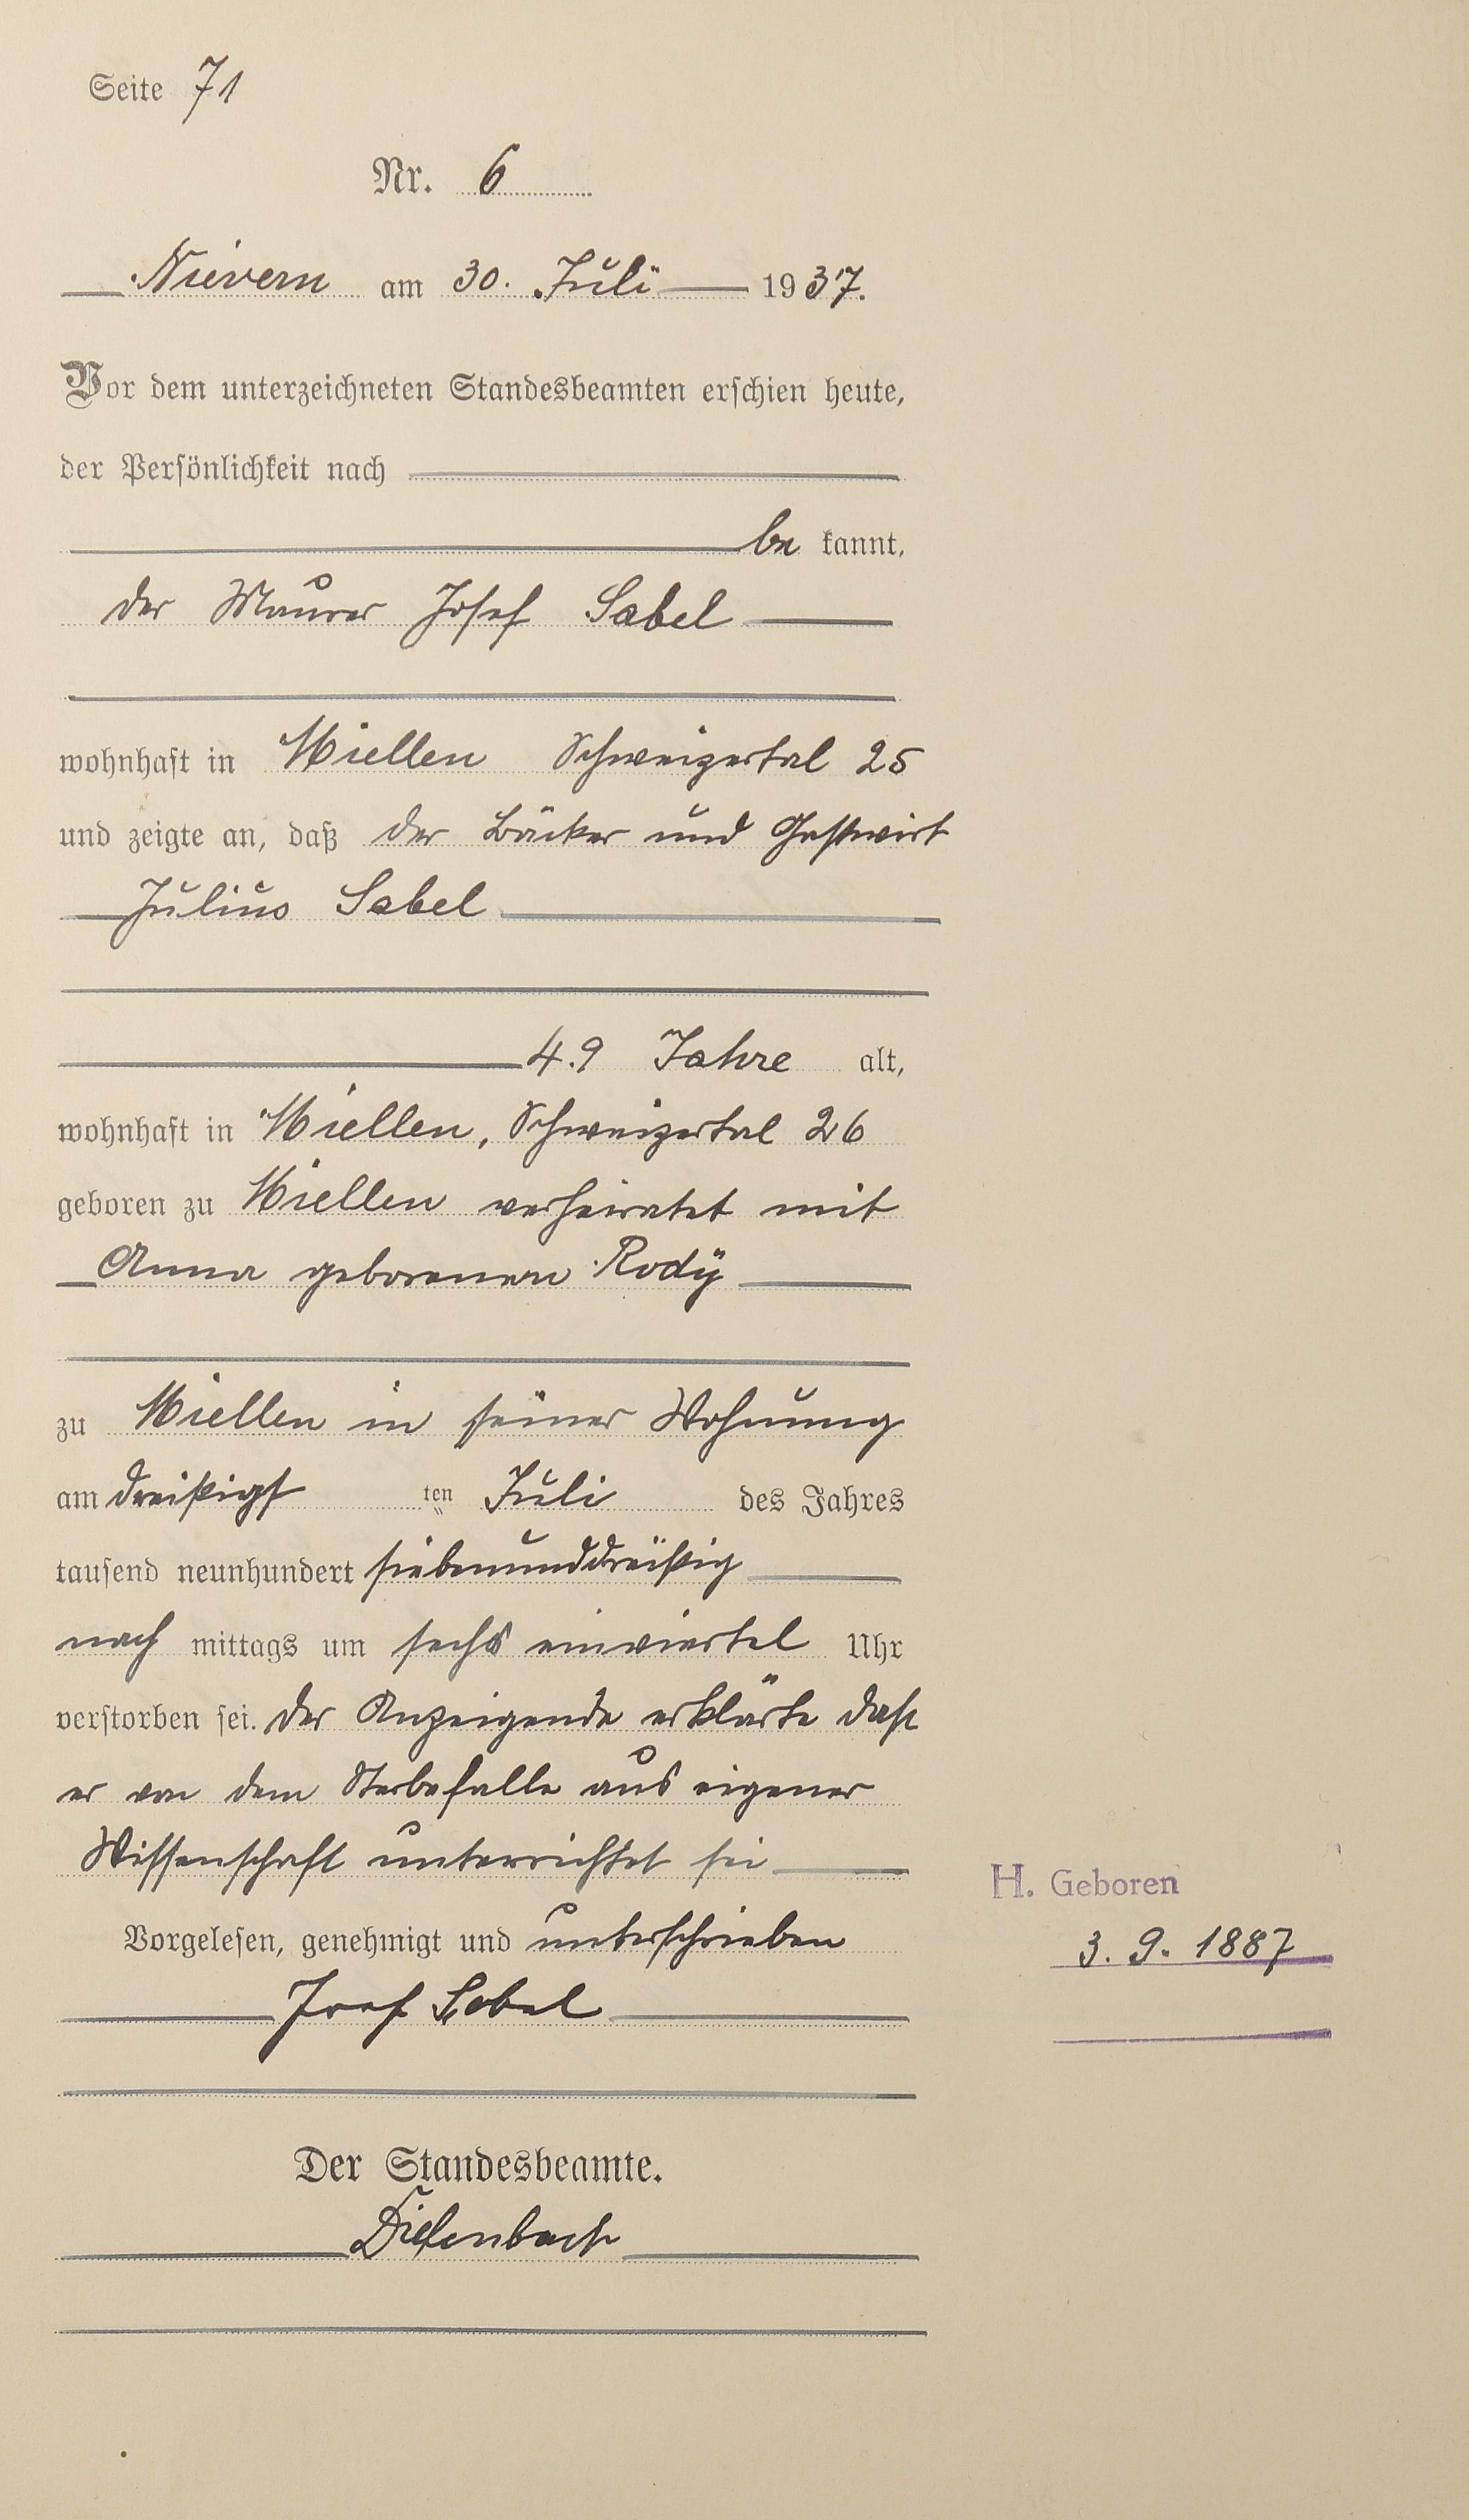 Seite 71
Nr. 6
Nievern am 30. Juli 1937.
Vor dem unterzeichneten Standesbeamten erschien heute,
der Persönlichkeit nach
be kannt,
der Maurer Josef Sabel
wohnhaft in Miellen Schweizertal 25
und zeigte an, daß der Bäcker und Gastwirt
Julius Sabel
49 Jahre alt,
wohnhaft in Miellen, Schweizertal 26
geboren zu Miellen verheiratet mit
Anna geborenen Rody
zu Miellen in seiner Wohnung
am dreißigst ten Juli des Jahres
tausend neunhundert siebenunddreißig
nach mittags um sechs einviertel Uhr
verstorben sei. Der Anzeigende erklärte daß
er von dem Sterbefalle aus eigener
Wissenschaft unterrichtet sei
Vorgelesen, genehmigt und unterschrieben
Josef Sabel
Der Standesbeamte.
Diefenbach
H. Geboren
3. 9. 1887